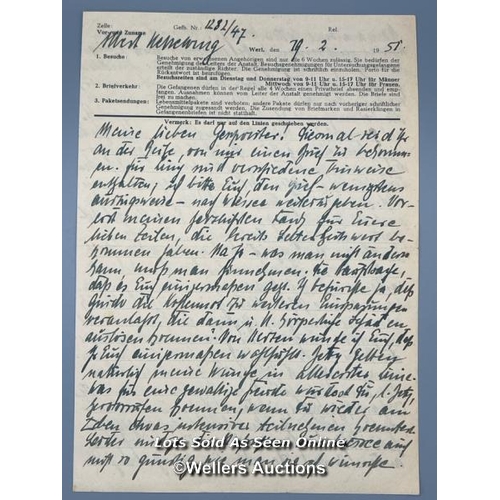 Zelle:
Gefb. Nr. 1282/47.
Rel.
Vor- und Zuname Albert Kesselring
Werl, den 19. 2. 1950.
1. Besuche: Besuche von erwachsenen Angehörigen sind nur alle 6 Wochen zulässig. Sie bedürfen
der Genehmigung des Leiters der Anstalt. Besuchsgenehmigungen für Untersuchungsgefangene
erteilt der zuständige Richter. Die Genehmigung ist schriftlich einzuholen. Porto für die
Rückantwort ist beizufügen.
Besuchszeiten sind am Dienstag und Donnerstag von 9-11 Uhr u. 15-17 Uhr für Männer
Mittwoch von 9-11 Uhr u. 15-17 Uhr für Frauen.
2. Briefverkehr: Die Gefangenen dürfen in der Regel alle 4 Wochen einen Privatbrief absenden und emp-
fangen. Ausnahmen können vom Leiter der Anstalt genehmigt werden. Die Briefe sind
3. Paketsendungen: Lebensmittelpakete sind verboten; andere Pakete dürfen nur nach vorheriger schriftlicher
Genehmigung zugesandt werden. Die Zusendung von Briefmarken und
in Gefangenenbriefen ist nicht statthaft.
Vermerk: Es darf nur auf den Linien geschrieben werden.
Meine lieben Geschwister! Diesmal seid Ihr
an der Reihe, von mir einen Brief zu bekommen.
für Euch und verschiedene Hinweise
enthalten, ich bitte Euch, den Brief - wenigstens
auszugsweise - nach weiterzugeben. Vor-
erst meinen herzlichsten Dank für Euere
lieben Zeilen, die bereits Seltenheitswert be-
kommen haben. Na ja - was man nicht ändern
kann, muß man hinnehmen. Die Hauptsache,
daß es Euch einigermaßen geht. Ich befürchte ja, daß
zu weiteren Einsparungen
veranlaßt, die dann u. U. körperliche Schäden
auslösen können. Von Herzen wünsche ich Euch, daß
Ihr Euch einigermaßen wohlfühlt. Jetzt gelten
natürlich meine Wünsche in allererster Linie
was für eine gewaltige Freude würdest Du,
hervorrufen können, wenn Du wieder am
Leben etwas intensiver teilnehmen könntest.
Leider
nicht so günstig, wie man es sich wünscht.
Lots Sold As Seen Online
©Wellers Auctions